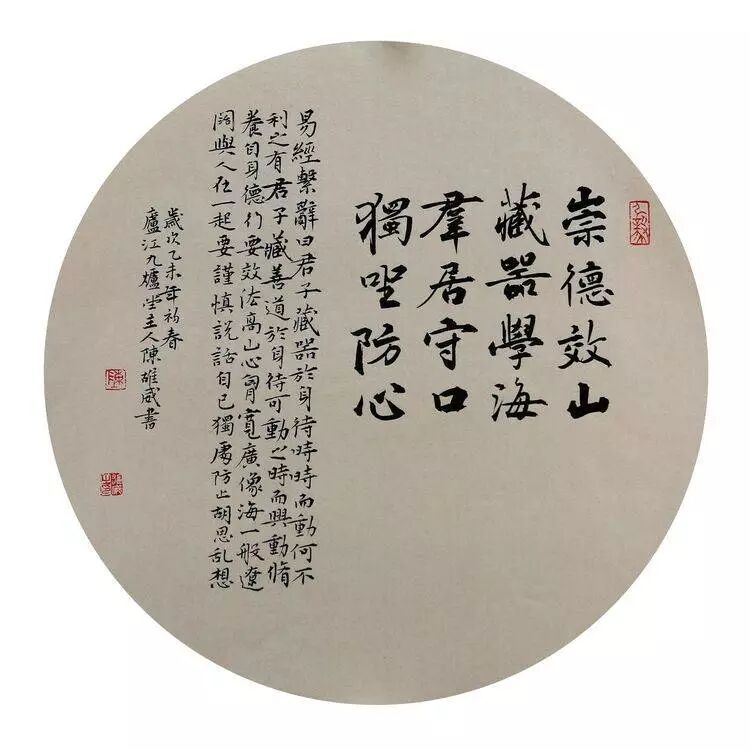 崇德效山
藏器學海
羣居守口
獨坐防心
易經繫辭曰君子藏器於身待時時而動何不
利之有君子藏善道於身待可動之時而興動脩
養自身德行要效法高山心胷寬廣像海一般遼
闊與人在一起要謹慎說話自己獨處防止胡思乱想
歲次乙未年初春
廬江九爐堂主人陳雄威書
陳